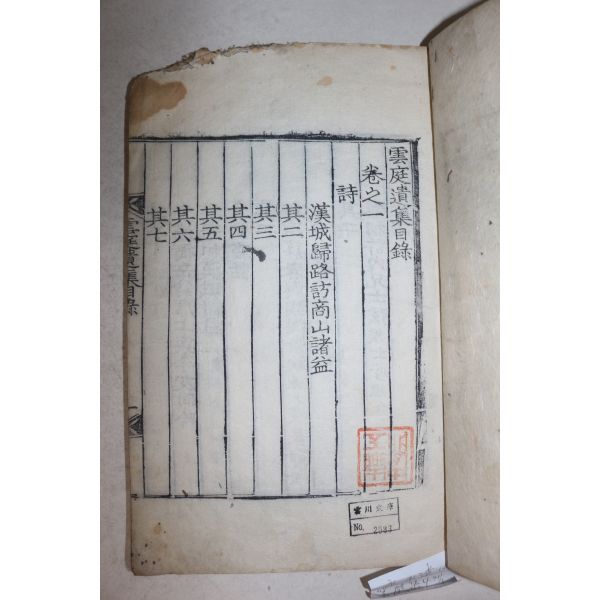 雲庭遺集目錄
卷之一
詩
漢城歸路訪商山諸益
其二
其三
其四
其五
其六
其七
雲庭遺集目錄
川文庫
No. 2583